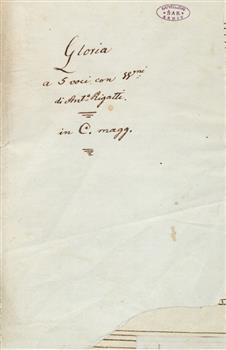 Gloria
a 5 voci con VV.ni
di Ant.o Rigatti.
in C. magg.